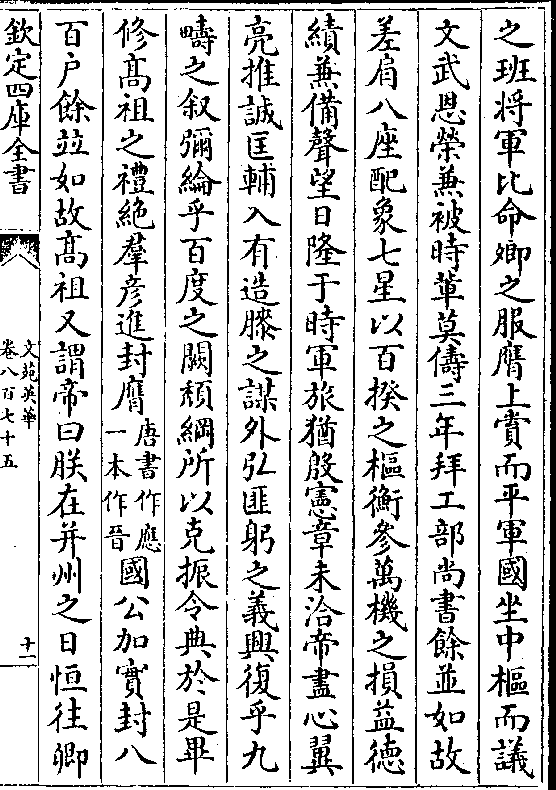 之班将軍比命卿之服膺上賞而平軍國坐中樞而議
文武恩榮兼被時輩莫儔三年拜工部尚書餘並如故
差肩八座配象七星以百揆之樞衡參萬機之損益德
績兼備聲望日隆于時軍旅猶殷憲章未洽帝盡心翼
亮推誠匡輔入有造膝之謀外弘匪躬之義興復乎九
疇之叙彌綸乎百度之闕頽綱所以克振令典於是畢
修髙祖之禮絶羣彦進封膺唐書作應一本作晉國公加實封八
百户餘並如故髙祖又謂帝曰朕在并州之日恒往卿
欽定四庫全書
文苑英華
卷八百七十五
十一